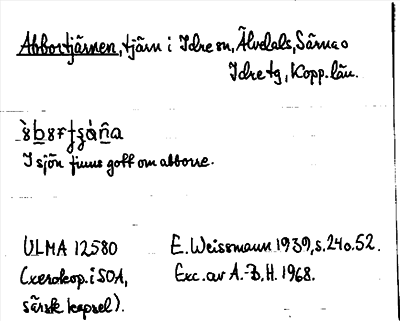 Abbortjärnen, tjärn i Idre sn, Älvdals, Särna o
Idre tg, Kopp. län.
I sjön finns gott om abborre.
ULMA 12580 E. Weissmann 1939, s. 24 o. 52.
(xerokop. i SOA, Exc. av A.-B. H. 1968.
särsk kapsel).